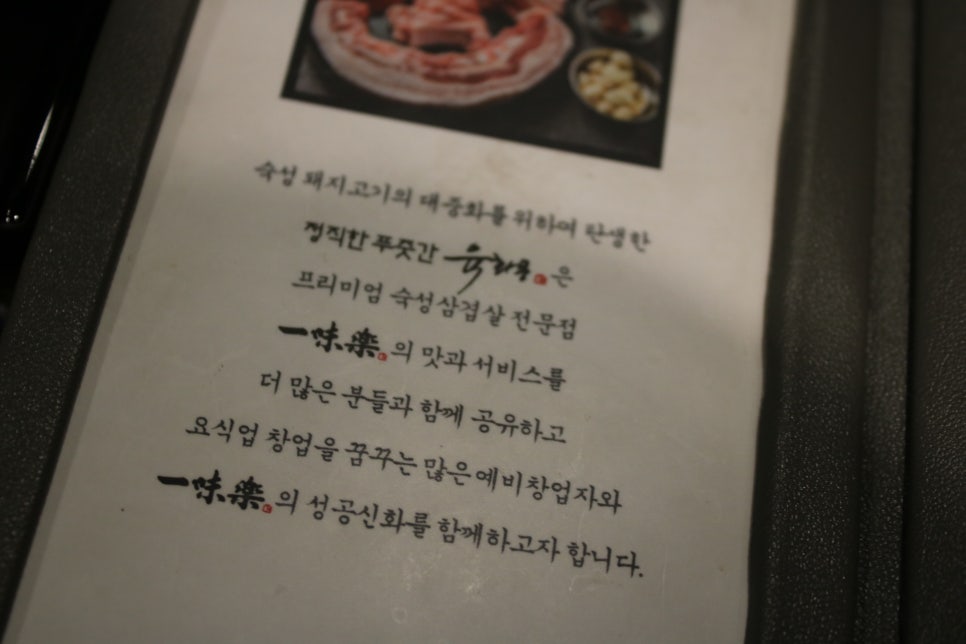 숙성 돼지고기의 대중화를 위하여 탄생한
정직한 푸줏간 육화몽은
프리미엄 숙성삼겹살 전문점
一味楽의 맛과 서비스를
더 많은 분들과 함께 공유하고
요식업 창업을 꿈꾸는 많은예비창업자와
一味楽의 성공신화를 함께하고자 합니다.